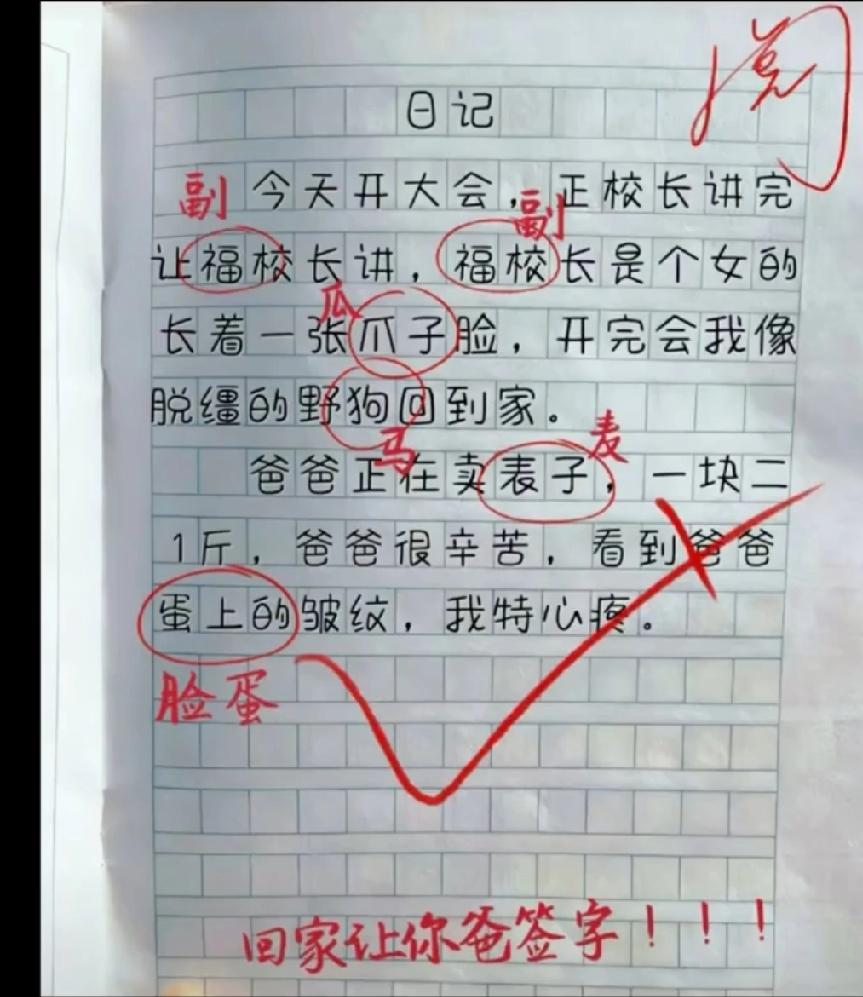 阅
日记
副 今天开大会，正校长讲完
副
让福校长讲，福校长是个女的
瓜
长着一张爪子脸，开完会我像
脱缰的野狗回到家。
马 麦
爸爸正在卖表子，一块二
1斤，爸爸很辛苦，看到爸爸
蛋上的皱纹，我特心疼。
脸蛋
回家让你爸签字！！！